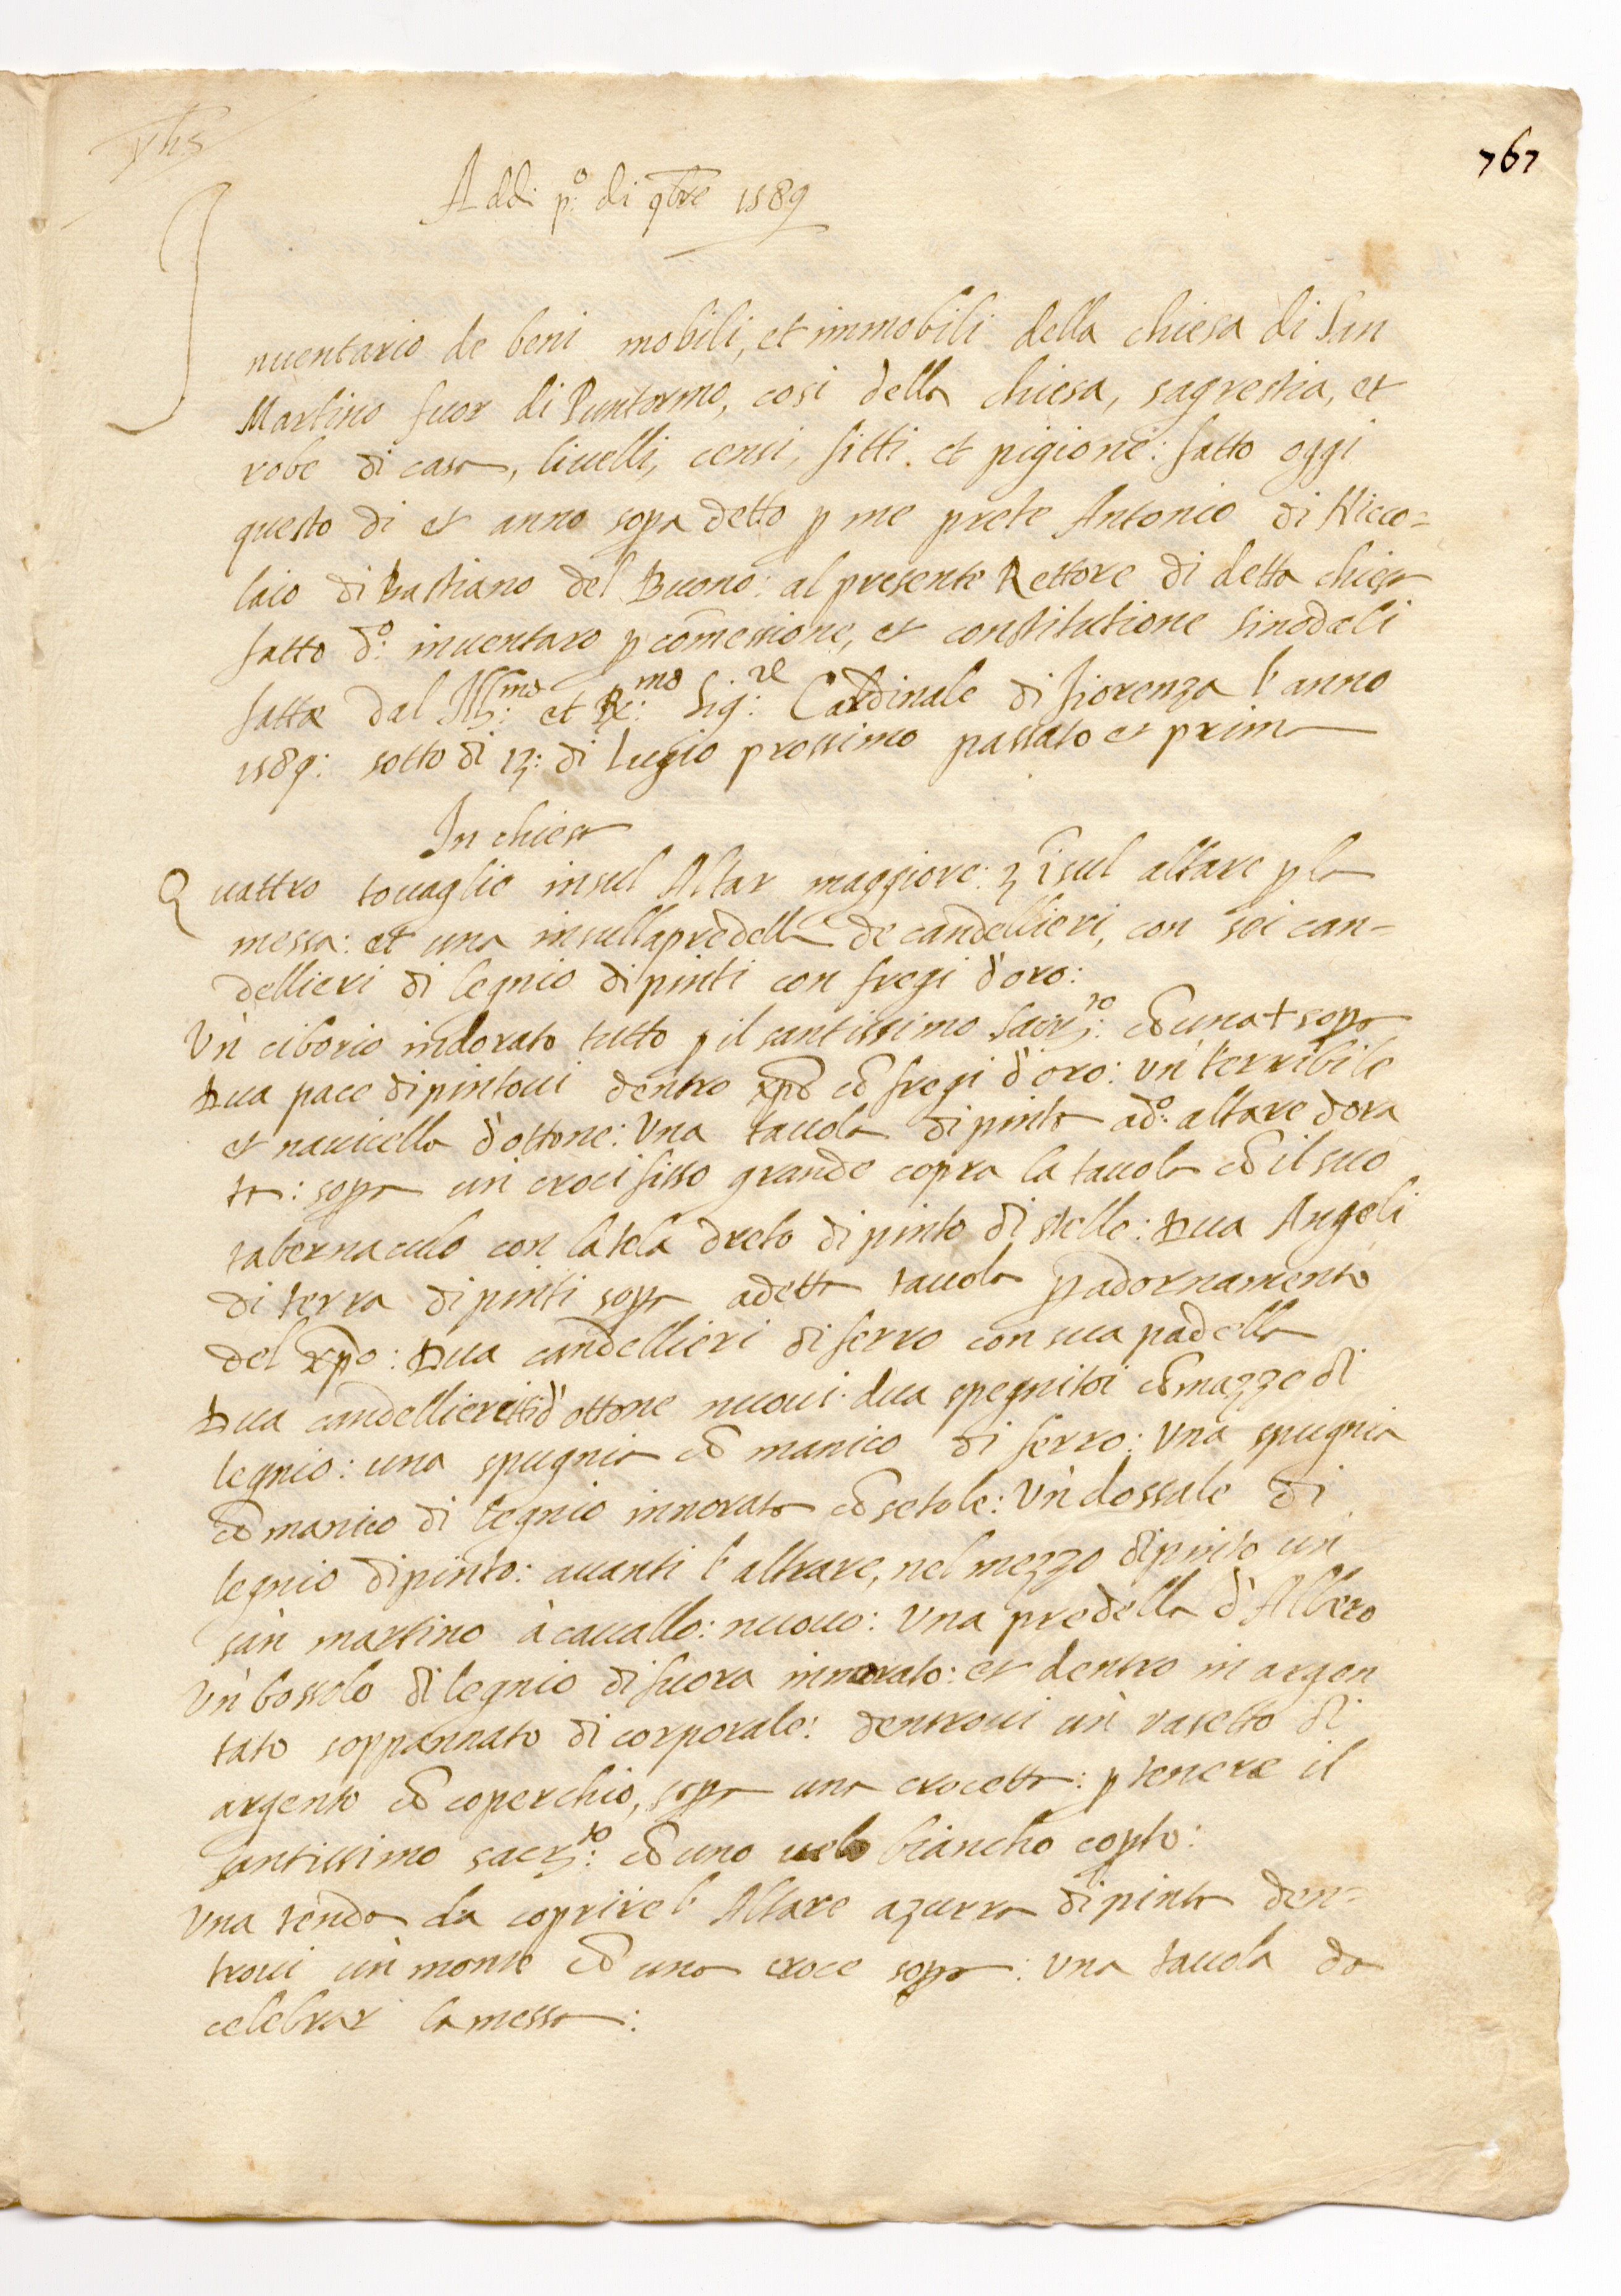 yhs
767
Addi p.o di 9bre 1589
Inuentario de beni mobili, et immobili della chiesa di San
Martino fuor di Puntormo, cosi della chiesa, sagrestia, et
robe di casa, liuelli, censi, fitti. et pigione: fatto oggi
questo di et anno sopa detto p me prete Antonio di Nicco=
laio di Bastiano del Buono: al presente Rettore di detta chiesa
fatto d.o inuentaro p comessione, et constitutione sinodali
fatta dal Ill.mo et R.mo Sig.re Cardinale di fiorenza l'anno
1589: sotto di 13: di Luglio prossimo passato et prima
In chiesa
Quattro touaglie insul Altar maggiore: 3 isul altare p la
messa: et una insulla predella de candellieri, con sei can=
dellieri di legnio dipinti con fregi d'oro:
Un ciborio indorato tutto p il santissimo sacr.to cō una + sopa
Dua pace dipintoui dentro xpō cō fregi d'oro: un terribile
et nauicella d'ottone: Una tauola dipinta a d.o altare dora
ta: sopa un crocifisso grande copra la tauola cō il suo
tabernaculo con la tela dreto dipinto di stelle: Dua Angeli
di terra dipinti sopa a detta tauola p adornamento
del xpō: Dua candellieri di ferro con sua padella
Dua candellieretti d'ottone nuoui. dua spegnitoi cō mazze di
legnio: una spugnia cō manico di ferro: Una spugnia
cō manico di legnio innorato cō setole: Un dossale di
legnio dipinto: auanti l'altrare, nel mezzo dipinto un
san martino à cauallo: nuouo: Una predella d'Albero
Un bossolo di legnio di fuora innorato: et dentro in argen
tato soppannato di corporale: dentroui un vasetto di
argento cō coperchio, sopa una crocetta: p tenere il
santissimo sacr.to: cō uno uelo biancho copto:
Una tenda da coprire l'Altare azurra dipinta den=
troui un monte cō una croce sopa: Una tauola da
celebrar la messa: